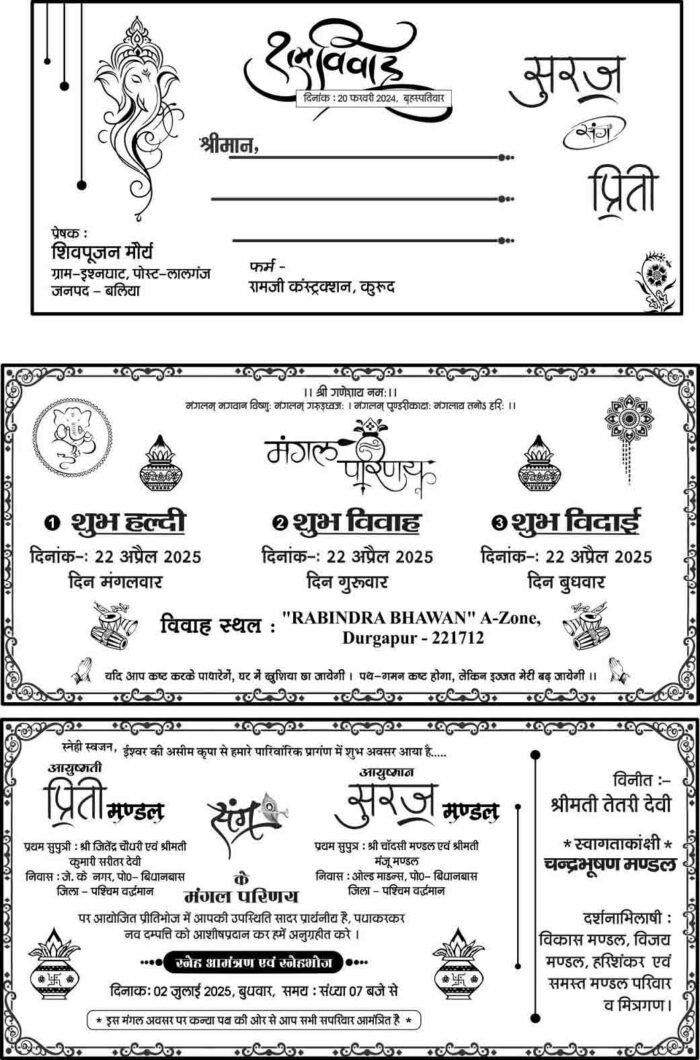 शुभ विवाह
दिनांक : 20 फरवरी 2024, बृहस्पतिवार
सुरज
संग
प्रिती
श्रीमान,
प्रेषक :
शिवपूजन मौर्य
ग्राम-इश्नघाट, पोस्ट-लालगंज
जनपद – बलिया
फर्म -
रामजी कंस्ट्रक्शन, कुरुद
।। श्री गणेशाय नमः।।
मंगलम् भगवान विष्णुः मंगलम् गरुड़ध्वजः । मंगलम् पुण्डरीकाक्षः मंगलाय तनोऽ हरिः ।।
मंगल परिणय
1 शुभ हल्दी
दिनांक-: 22 अप्रैल 2025
दिन मंगलवार
2 शुभ विवाह
दिनांक-: 22 अप्रैल 2025
दिन गुरूवार
3 शुभ विदाई
दिनांक-: 22 अप्रैल 2025
दिन बुधवार
विवाह स्थल : "RABINDRA BHAWAN" A-Zone,
Durgapur - 221712
यदि आप कष्ट करके पाधारेगें, घर में खुशिया छा जायेगी । पथ-गमन कष्ट होगा, लेकिन इज्जत मेरी बढ़ जायेगी ।।
स्नेही स्वजन, ईश्वर की असीम कृपा से हमारे पारिवारिक प्रागंण में शुभ अवसर आया है.....
आयुष्मती
प्रिती मण्डल
प्रथम सुपुत्री : श्री जितेंद्र चौधरी एवं श्रीमती
कुमारी सरीतर देवी
निवास : जे. के नगर, पो0- बिधानबास
जिला – पश्चिम वर्द्धमान
संग
के
मंगल परिणय
आयुष्मान
सुरज मण्डल
प्रथम सुपुत्र : श्री चाँदसी मण्डल एवं श्रीमती
मंजू मण्डल
निवास : ओल्ड माडन्स, पो0- बिधानबास
जिला – पश्चिम वर्द्धमान
पर आयोजित प्रीतिभोज में आपकी उपस्थिति सादर प्रार्थनीय है, पधाकरकर
नव दम्पत्ति को आशीषप्रदान कर हमें अनुग्रहीत करे ।
स्नेह आमंत्रण एवं स्नेहभोज
दिनाक: 02 जुलाई 2025, बुधवार, समय : संध्या 07 बजे से
* इस मंगल अवसर पर कन्या पक्ष की ओर से आप सभी सपरिवार आमंत्रित है *
विनीत :–
श्रीमती तेतरी देवी
* स्वागताकांक्षी *
चन्द्रभूषण मण्डल
दर्शनाभिलाषी :
विकास मण्डल, विजय
मण्डल, हरिशंकर एवं
समस्त मण्डल परिवार
व मित्रगण।